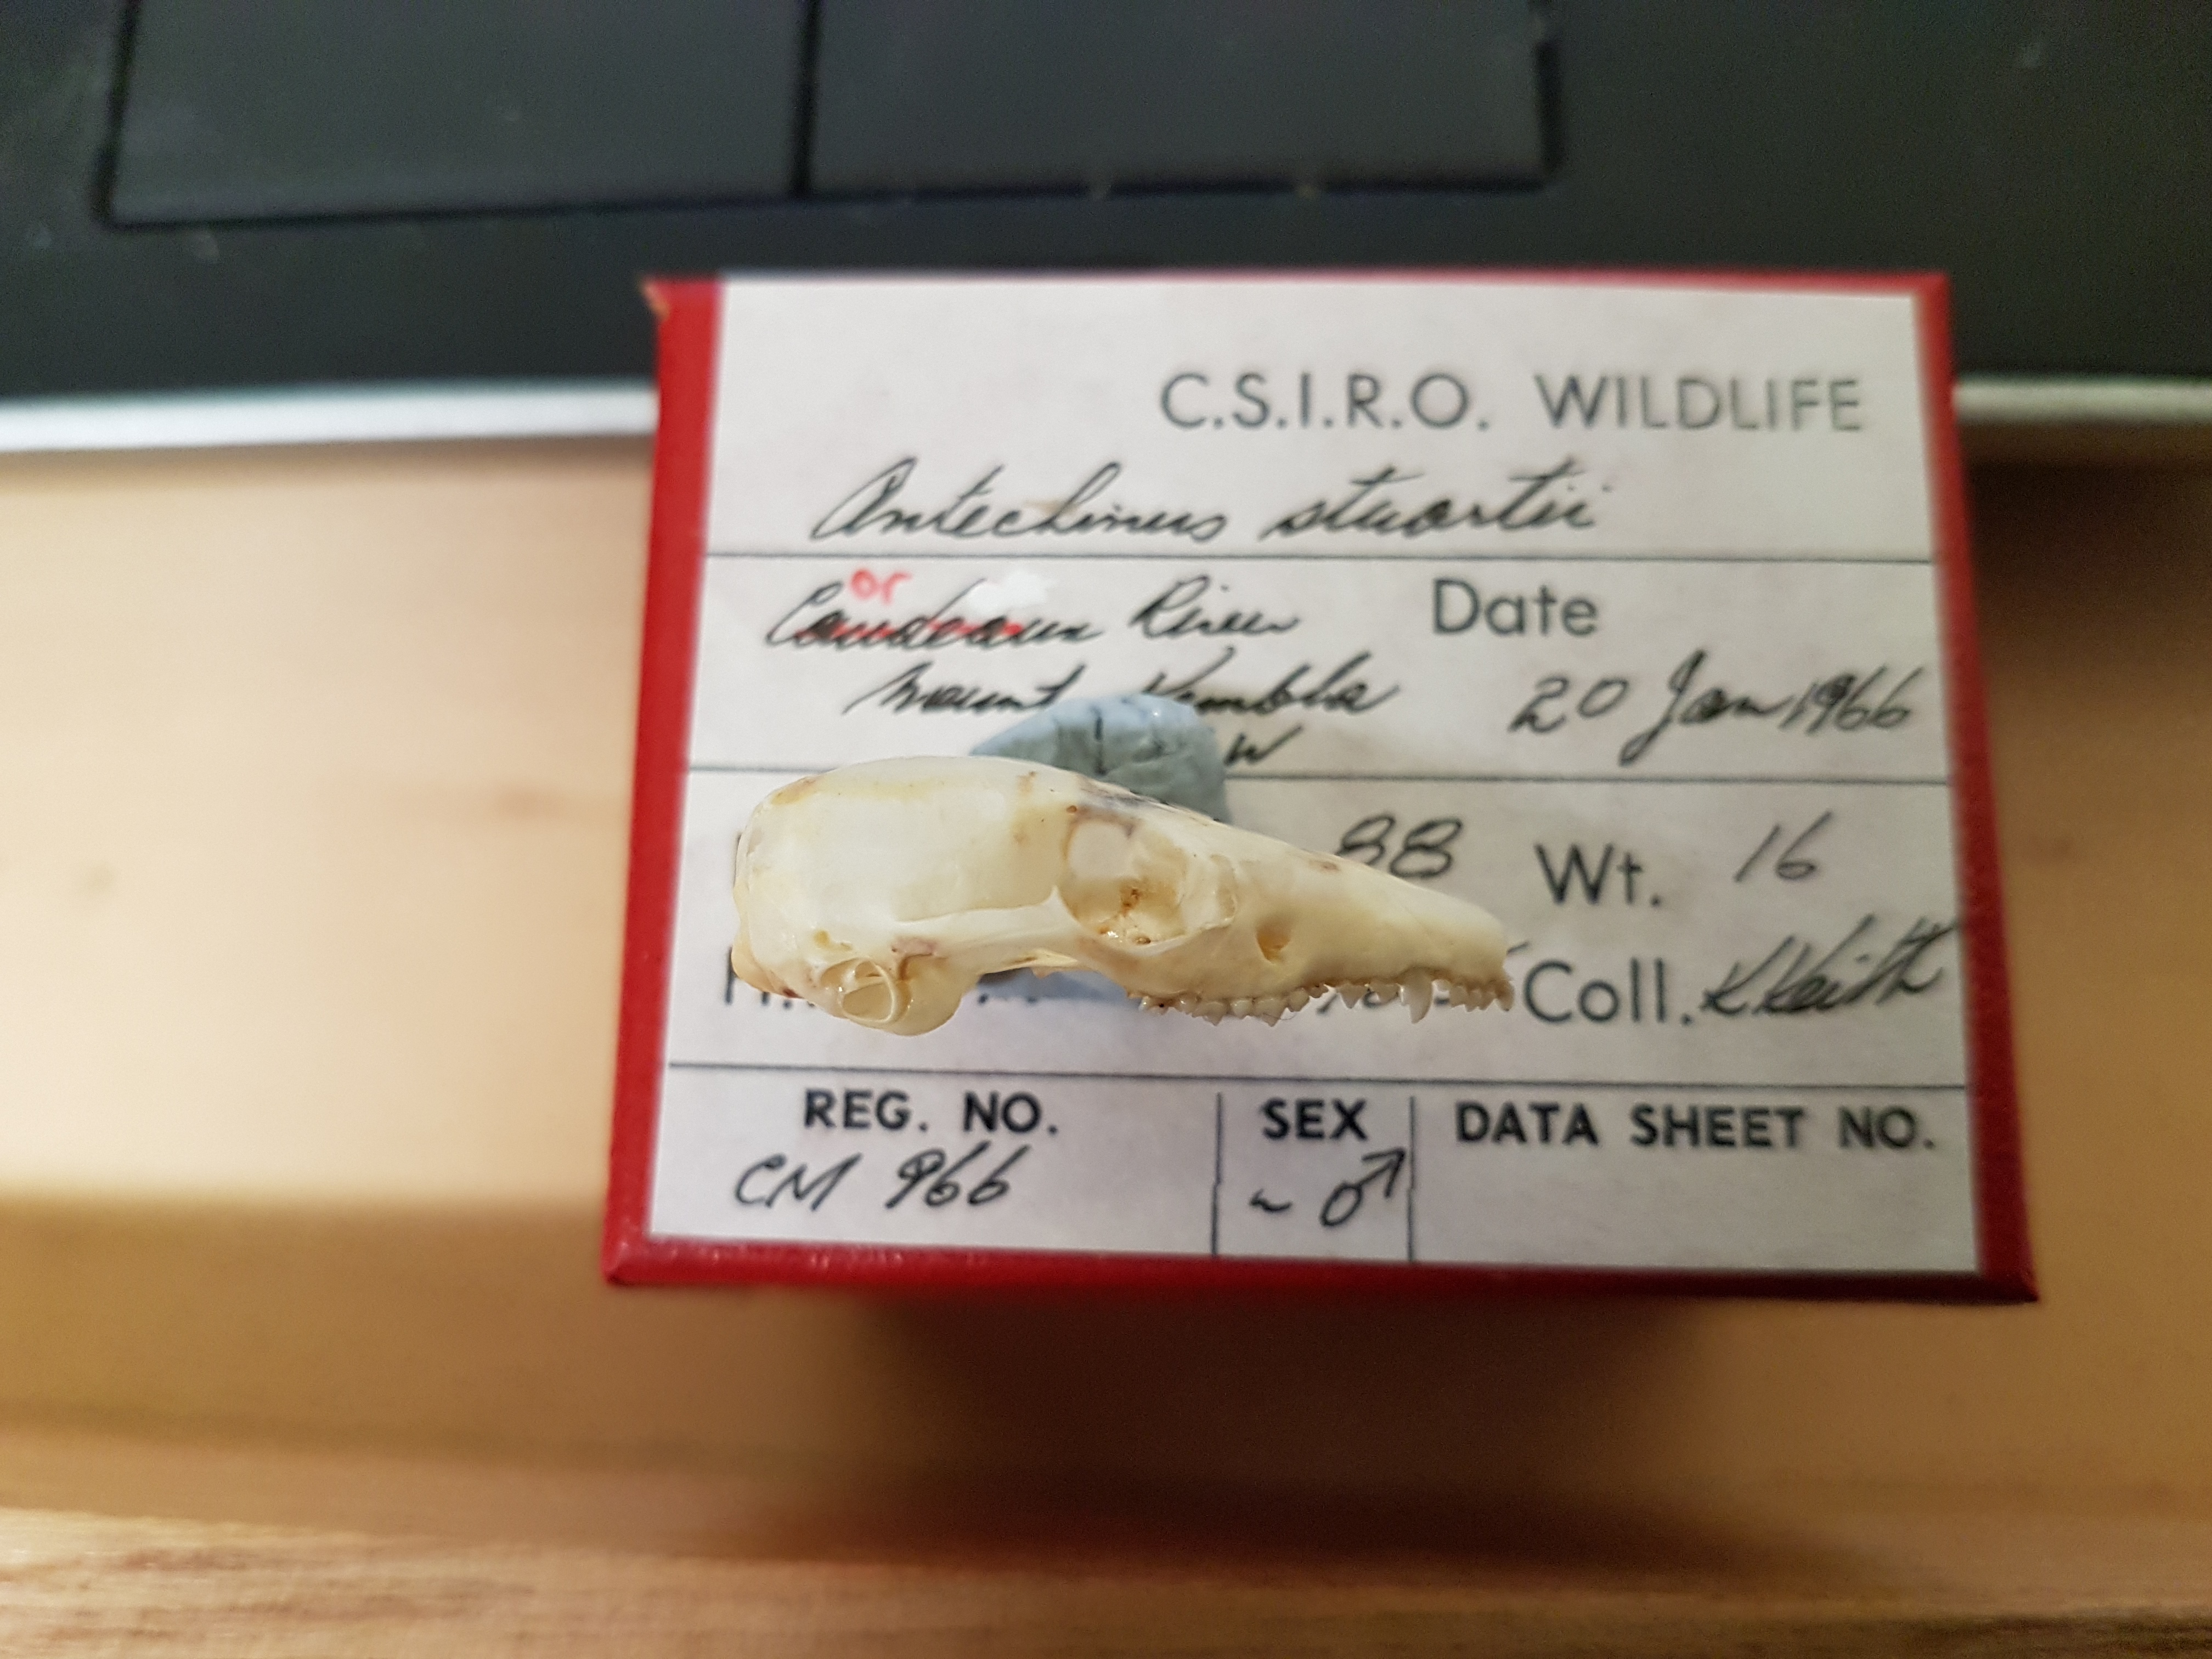 C.S.I.R.O. WILDLIFE
Antechinus stuartii
or
River Date
Mount Kembla 20 Jan 1966
W
88 Wt. 16
Coll. K Keith
REG. NO. SEX DATA SHEET NO.
CM 966 ~ ♂